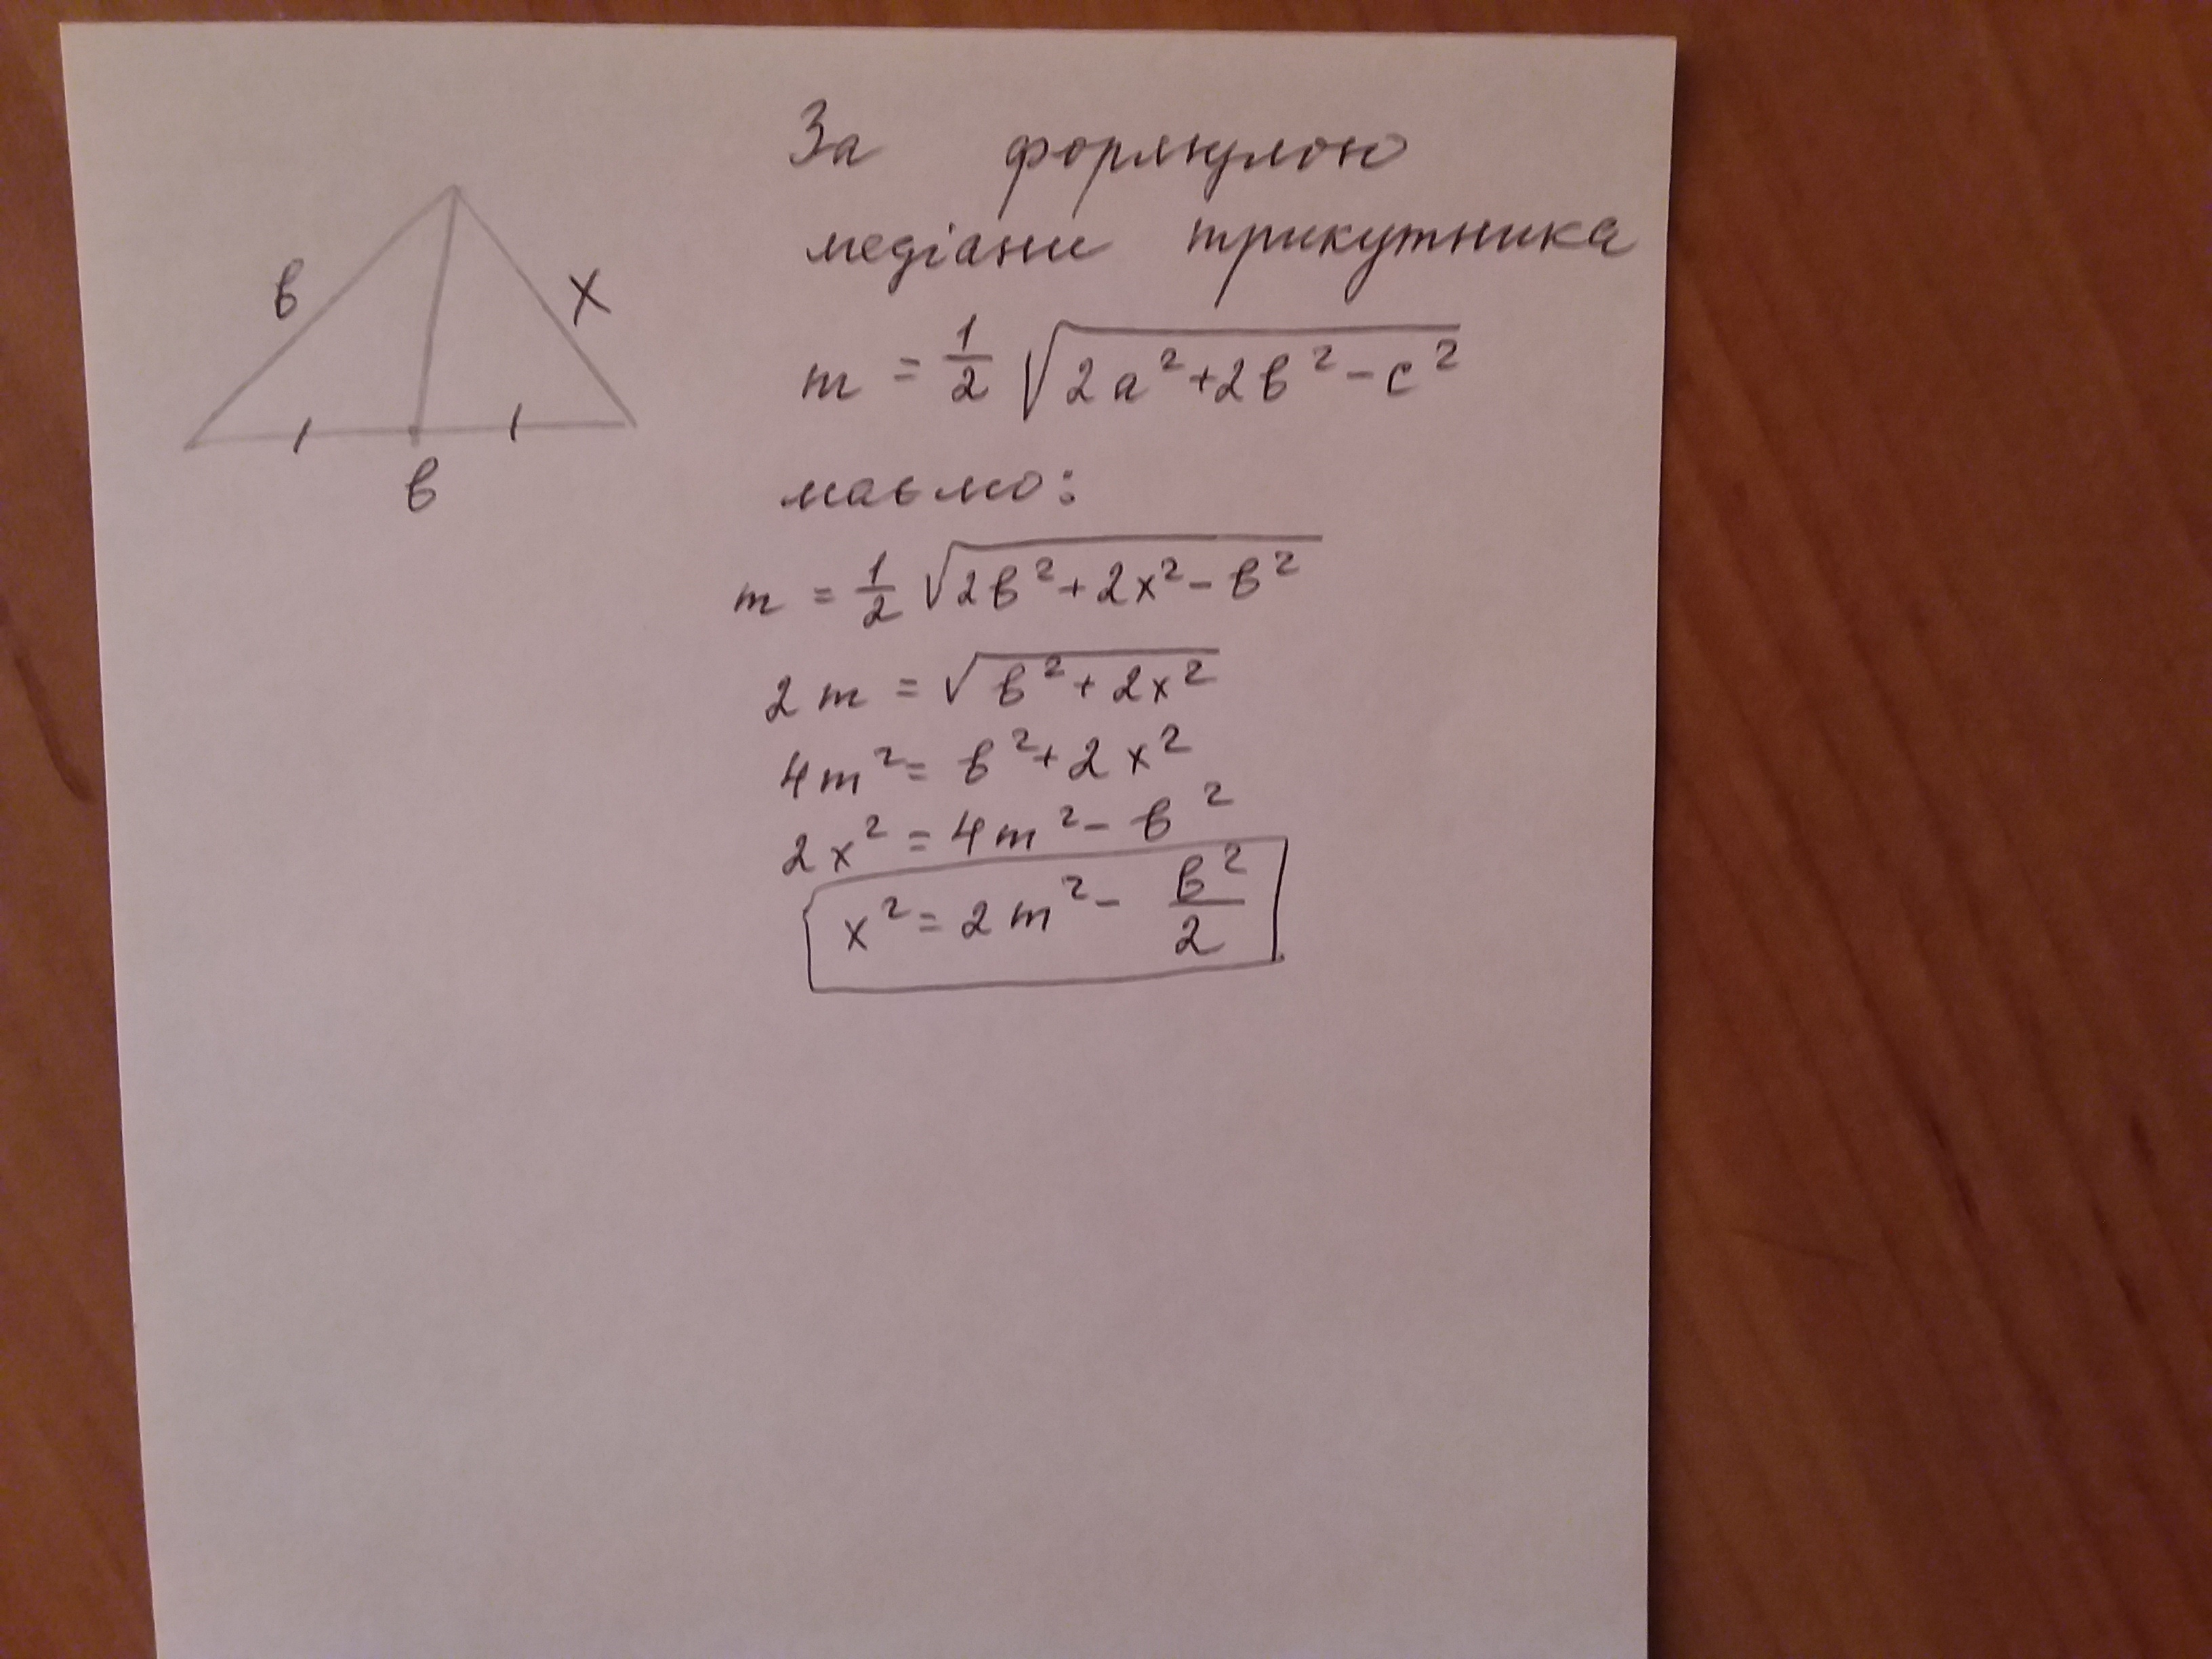 в
х
в
За формулою
медіани трикутника
m = 1/2 √(2a² + 2в² - c²)
маємо:
m = 1/2 √(2в² + 2x² - в²)
2m = √(в² + 2x²)
4m² = в² + 2x²
2x² = 4m² - в²
x² = 2m² - в²/2